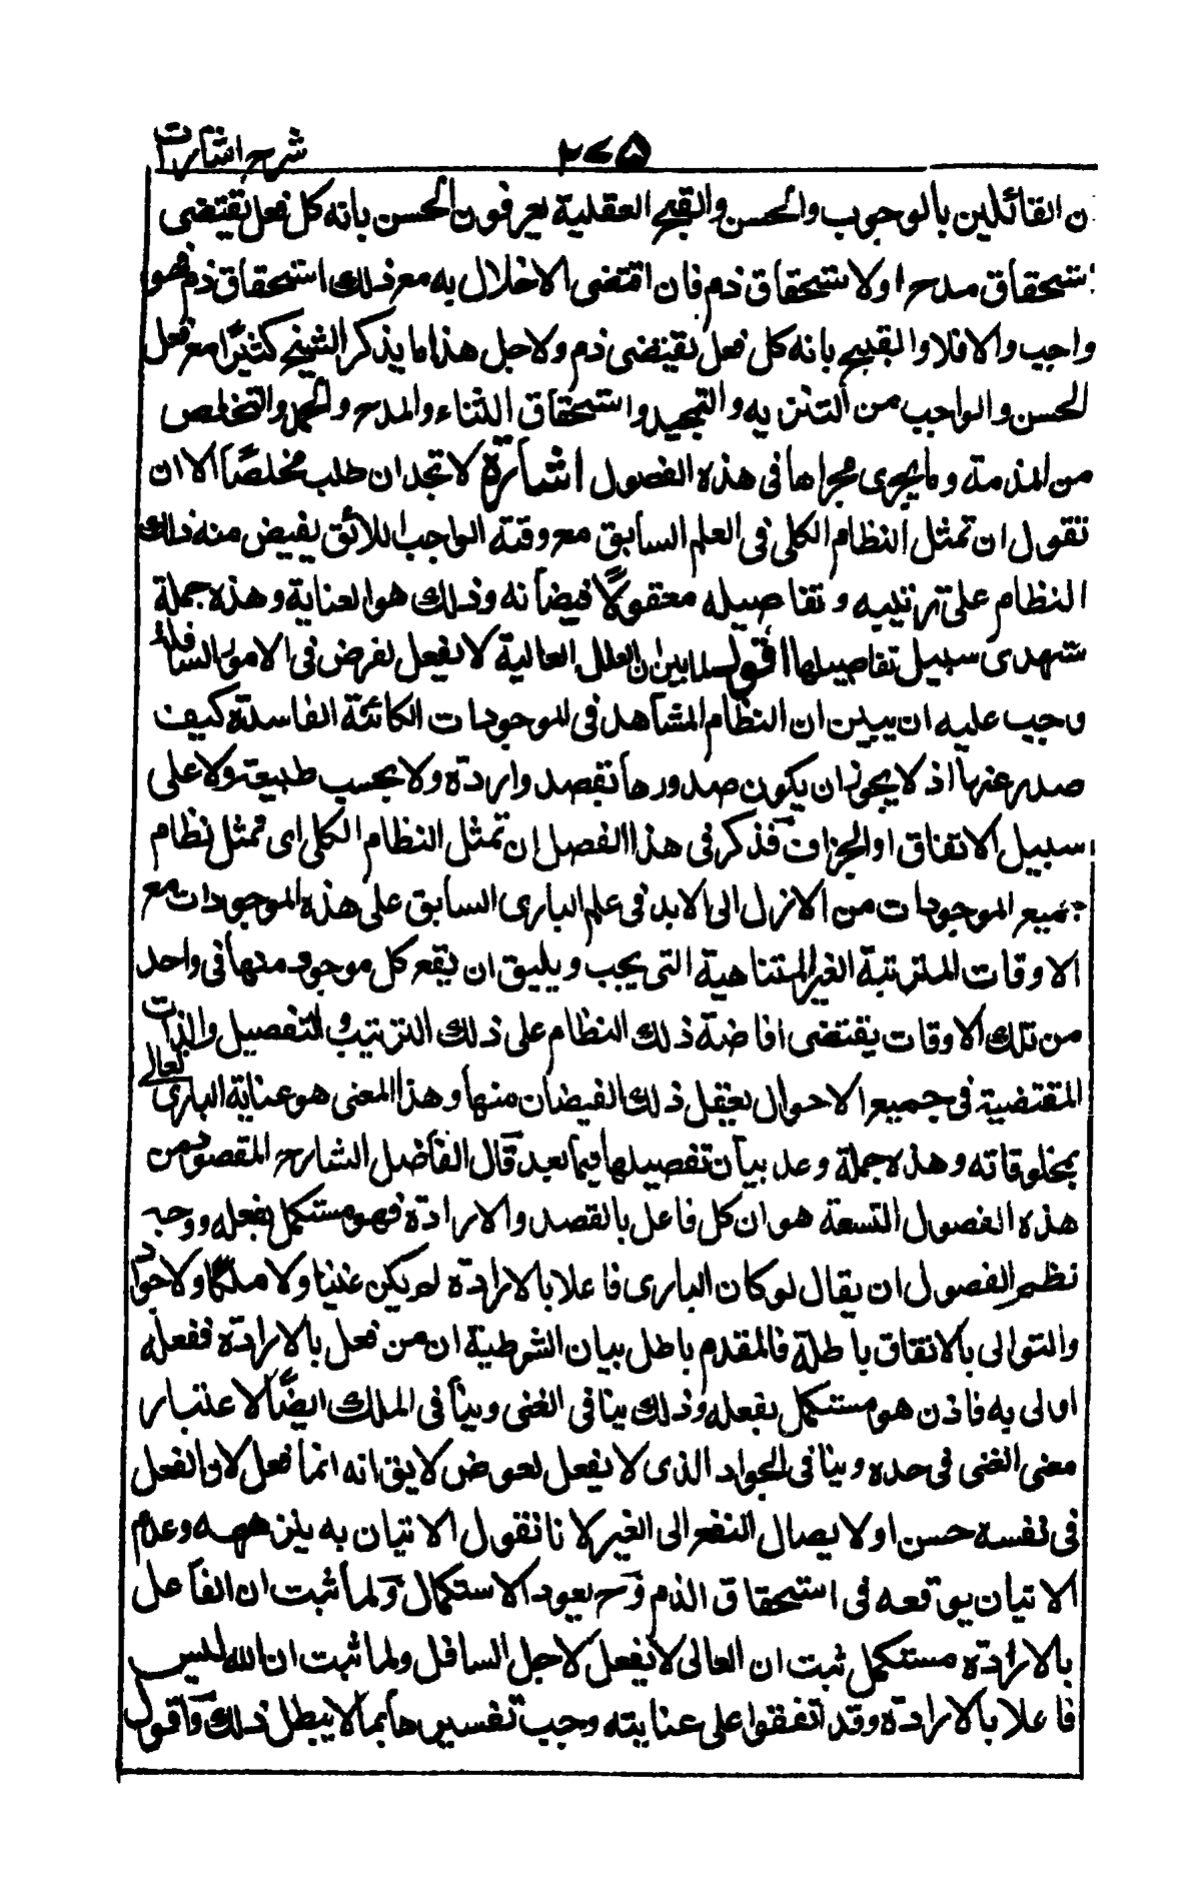 شرح اشارات ٢٧٥
ن القائلين بالوجوب والحسن والقبح العقلية يعرفون الحسن بانه كل فعل يقتضى
ستحقاق مدح اولا ستحقاق ذم فان اقتضى الاخلال به مع ذلك استحقاق ذم فهو
واجب والا فلا والقبيح بانه كل فعل يقتضى ذم ولاجل هذا ما يذكر الشيخ كثيرًا مع فعل
الحسن والواجب من التنزيه والتمجيد واستحقاق الثناء والمدح والحمد والتخلص
من المذمة وما يجرى مجراها فى هذه الفصول اشارة لا تجد ان طلب مخلصًا الا ان
نقول ان تمثل النظام الكلى فى العلم السابق مع وقته الواجب اللائق يفيض منه ذلك
النظام على ترتيبه وتفاصيله معقولًا فيضانه وذلك هو العناية وهذه جملة
ستهدى سبيل تفاصيلها اقول لما بين ان العلل العالية لا يفعل لغرض فى الامور السافلة
وجب عليه ان يبين ان النظام المشاهد فى الموجودات الكائنة الفاسدة كيف
صدر عنها اذ لا يجوز ان يكون صدورها بقصد وارادة ولا بحسب طبيعة ولا على
سبيل الاتفاق او الجزاف فذكر فى هذا الفصل ان تمثل النظام الكلى اى تمثل نظام
جميع الموجودات من الازل الى الابد فى علم البارى السابق على هذه الموجودات مع
الاوقات المترتبة الغير المتناهية التى يجب ويليق ان يقع كل موجود منها فى واحد
من تلك الاوقات يقتضى افاضة ذلك النظام على ذلك الترتيب والتفصيل والذات
المقتضية فى جميع الاحوال يعقل ذلك الفيضان منها وهذا المعنى هو عناية البارى تعالى
بمخلوقاته وهذه جملة وعد بيان تفصيلها فيما بعد قال الفاضل الشارح المقصود من
هذه الفصول التسعة هو ان كل فاعل بالقصد والارادة فهو مستكمل بفعله ووجه
نظم الفصول ان يقال لو كان البارى فاعلا بالارادة لم يكن غنيا ولا ملكًا ولا جوادا
والتوالى بالاتفاق باطلة فالمقدم باطل بيان الشرطية ان من فعل بالارادة ففعله
اولى به فاذن هو مستكمل بفعله وذلك ينافى الغنى وينافى الملك ايضًا لاعتبار
معنى الغنى فى حده وينافى الجواد الذى لا يفعل لعوض لا يق انه انما فعل لان الفعل
فى نفسه حسن او لايصال النفع الى الغير لانا نقول الاتيان به ينزهه وعدم
الاتيان يوقعه فى استحقاق الذم وح يعود الاستكمال ولما ثبت ان الفاعل
بالارادة مستكمل ثبت ان العالى لا يفعل لاجل السافل ولما ثبت ان الله ليس
فاعلا بالارادة وقد اتفقوا على عنايته وجب تفسيرها بما لا يبطل ذلك واقول